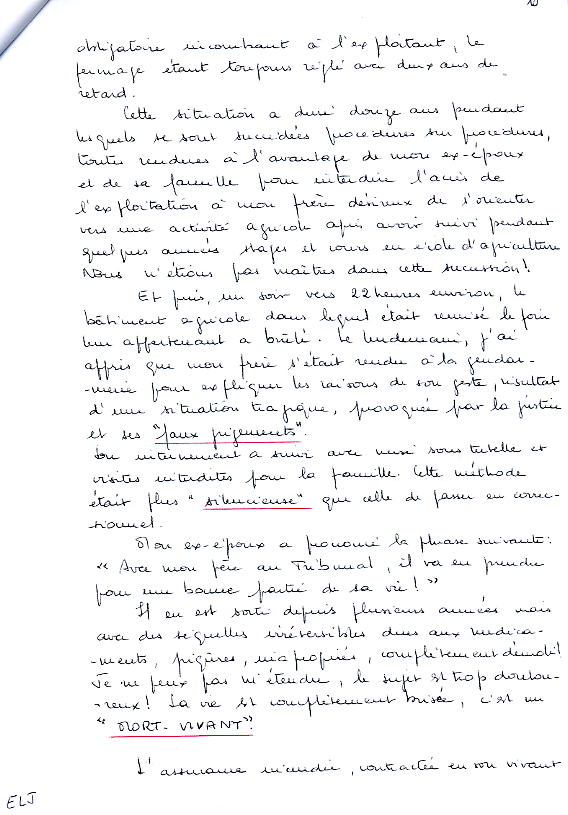 obligatoire incombant à l'exploitant, le
fermage étant toujours réglé avec deux ans de
retard.
Cette situation a duré douze ans pendant
lesquels se sont succédées procédures sur procédures,
toutes rendues à l'avantage de mon ex-époux
et de sa famille pour interdire l'accès de
l'exploitation à mon frère désireux de s'orienter
vers une activité agricole après avoir suivi pendant
quelques années stages et cours en école d'agriculture
Nous n'étions pas maîtres dans cette succession!
Et puis, un soir vers 22 heures environ, le
bâtiment agricole dans lequel était remisé le foin
leur appartenant a brûlé. Le lendemain, j'ai
appris que mon frère s'était rendu à la gendar-
-merie pour expliquer les raisons de son geste, résultat
d'une situation tragique, provoquée par la justice
et ses "faux jugements".
Son internement a suivi avec mise sous tutelle et
visites interdites pour la famille. Cette méthode
était plus "silencieuse" que celle de passer en correc-
-tionnel.
Mon ex-époux a prononcé la phrase suivante:
"Avec mon père au Tribunal, il va en prendre
pour une bonne partie de sa vie!"
Il en est sorti depuis plusieurs années mais
avec des séquelles irréversibles dues aux médica-
-ments, piqûres, inappropriés, complètement démoli!
Je ne peux pas m'étendre, le sujet est trop doulou-
-reux! Sa vie est complètement brisée, c'est un
"MORT-VIVANT"!
L'assurance incendie, contractée en son vivant
ELJ